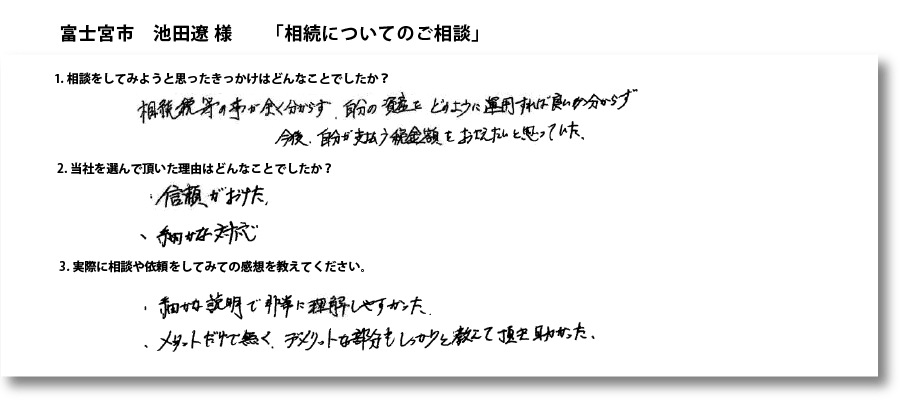 富士宮市 池田遼 様 「相続についてのご相談」
1. 相談をしてみようと思ったきっかけはどんなことでしたか？
相続税等の事が全く分からず、自分の資産をどのように運用すれば良いか分からず
今後、自分が支払う税金額をおさえたいと思っていた。
2. 当社を選んで頂いた理由はどんなことでしたか？
・信頼がおけた。
・細かな対応
3. 実際に相談や依頼をしてみての感想を教えてください。
・細かな説明で非常に理解しやすかった。
・メリットだけで無く、デメリットな部分もしっかりと教えて頂き助かった。